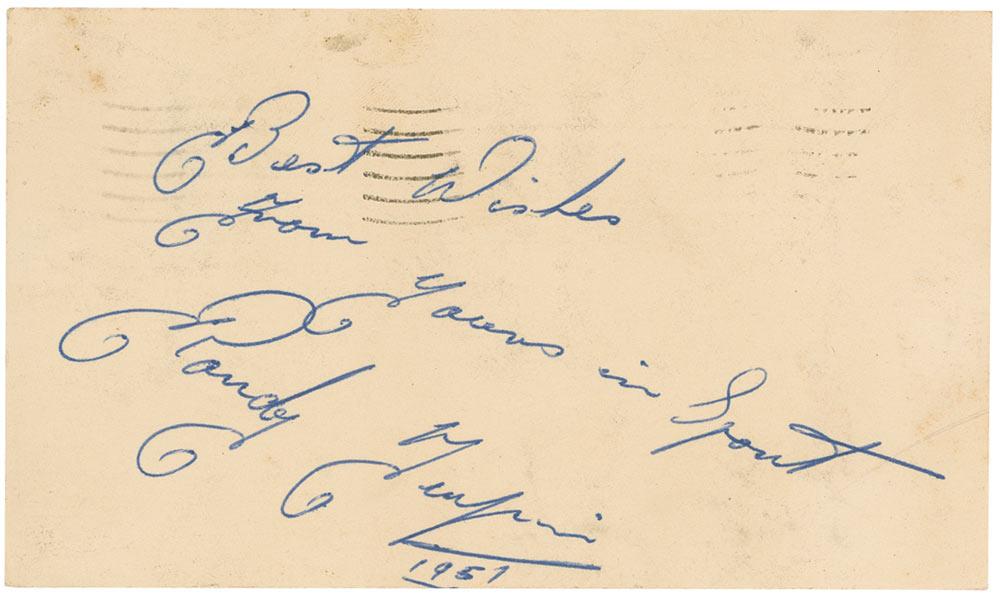 Best Wishes
From
Yours in Sport
Randy
Turpin
1951